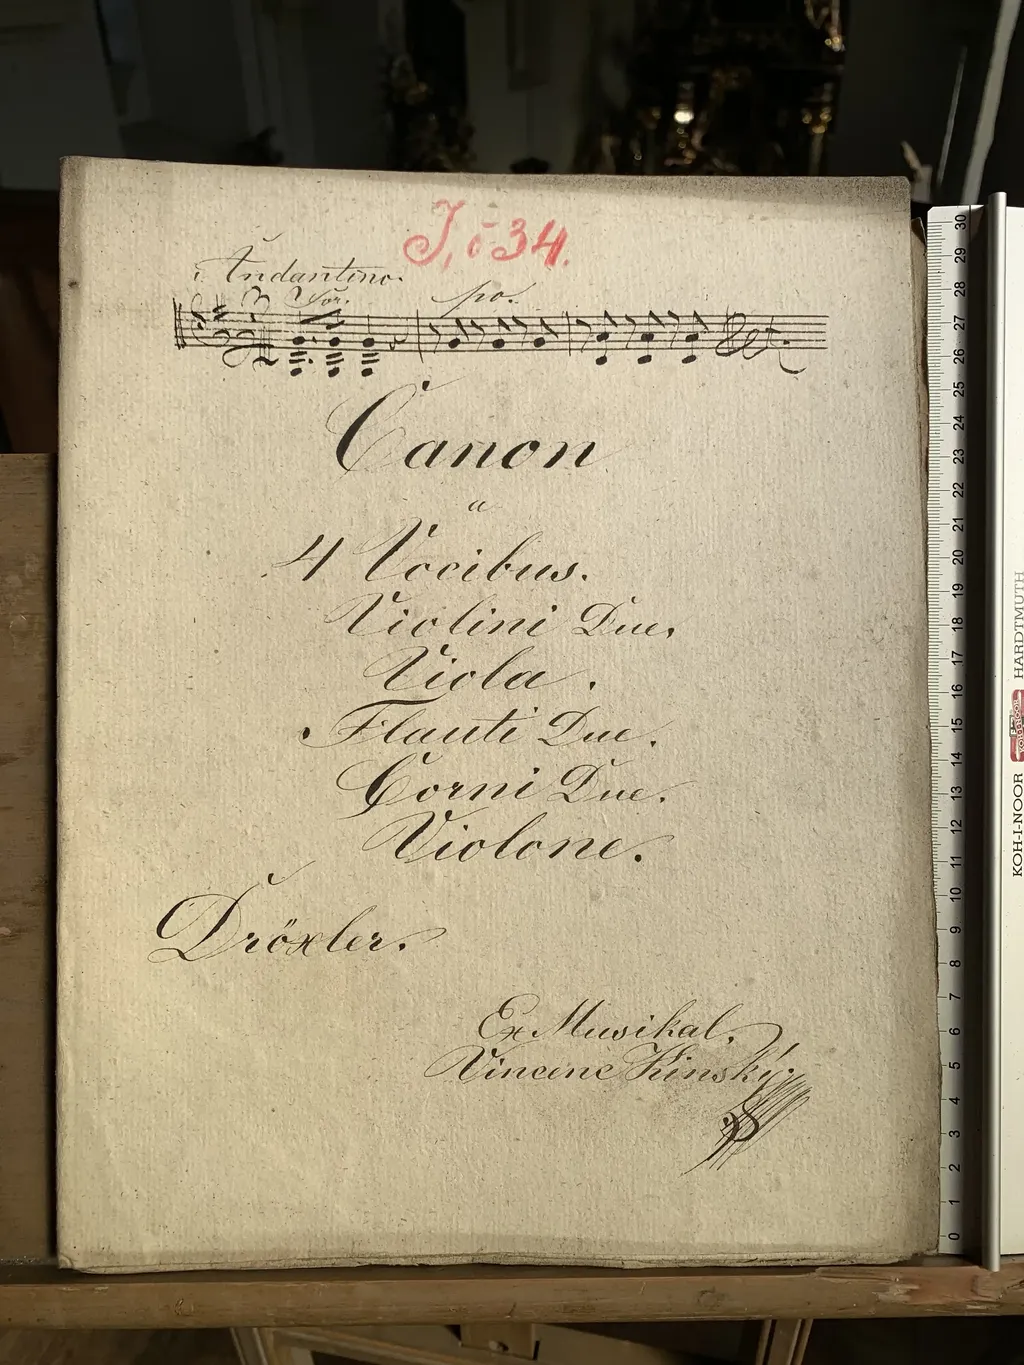 J, ō 34.
Andantino.
For. po.
Canon
a
4 Vocibus.
Violini Due.
Viola.
Flauti Due.
Corni Due.
Violone.
Dröxler.
Ex Musikal.
Vincenc Kinský.
30
29
28
27
26
25
24
23
22
21
20
19
18
17
16
15
14
13
12
11
10
9
8
7
6
5
4
3
2
1
0
KOH-I-NOOR HARDTMUTH